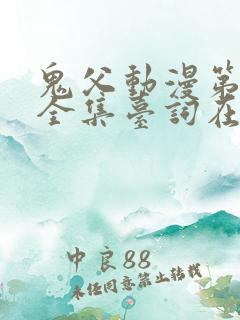 鬼父動漫第
全集臺詞在
中良88
未经同意禁止转载